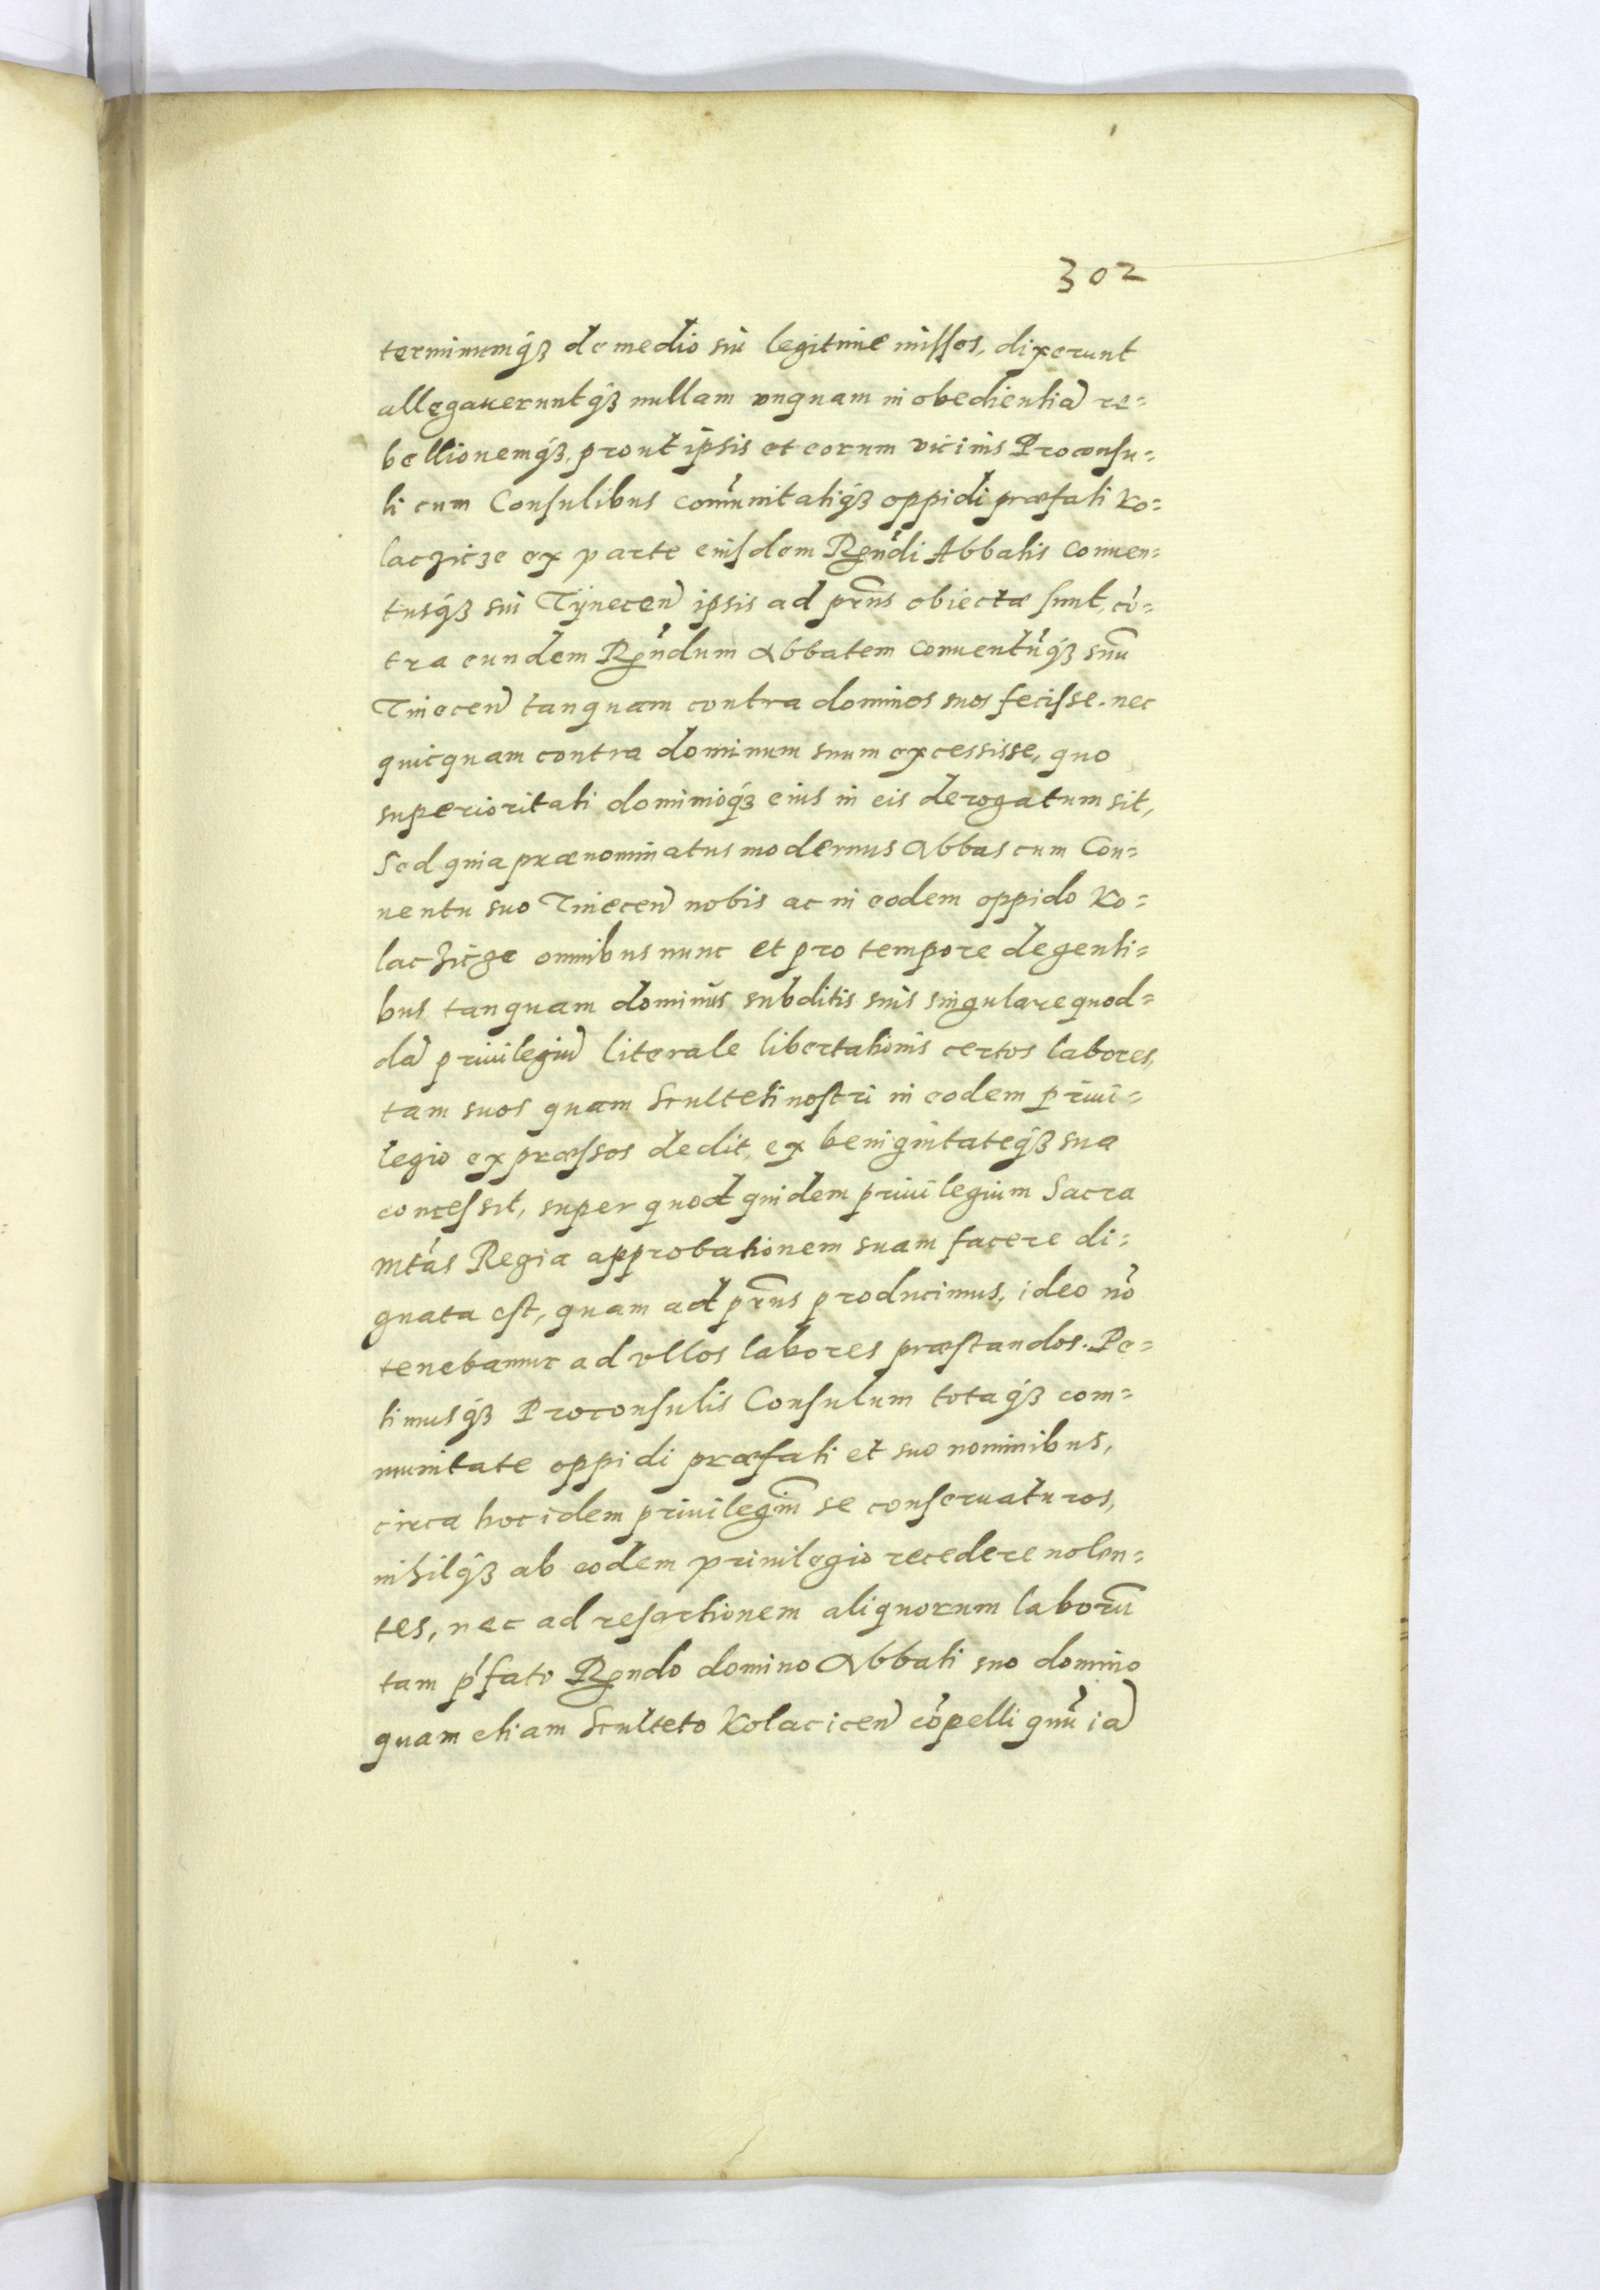 302
terminumq́ȝ de medio sui legitime missos, dixerunt
allegaueruntq́ȝ nullam vnquam inobedientiã re=
bellionemq́ȝ, prout ipsis et eorum vicinis Proconsu=
li cum Consulibus com̃unitatiq́ȝ oppidi præfati Ko=
laczicze ex parte eiusdem Rẽndi Abbatis Conuen=
tusq́ȝ sui Tÿnecen̄ ipsis ad pñs obiectæ sunt, cõ=
tra eundem Rẽndum Abbatem Conuentũq́ȝ suũ
Tinecen̄ tanquam contra dominos suos fecisse. nec
quicquam contra dominum suum excessisse, quo
superioritati dominioq́ȝ eius in eis derogatum sit,
Sed quia prænominatus modernus Abbas cum Con=
uentu suo Tinecen̄ nobis ac in eodem oppido Ko=
laczicze omnibus nunc et pro tempore degenti=
bus tanquam dominus subditis suis singulare quod=
dã priuilegiũ literale libertationis certos labores,
tam suos quam Sculteti nostri in eodem priui=
legio expræssos dedit, ex benignitateq́ȝ sua
concessit, super quod quidem priuilegium Sacra
Mtás Regia approbationem suam facere di=
gnata est, quam ad prñs producimus, ideo nõ
tenebamur ad vllos labores præstandos. Pe=
timusq́ȝ Proconsulis Consulum totaq́ȝ com=
munitate oppidi præfati et suo nominibus,
circa hoc idem priuilegiũ se conseruaturos,
nihilq́ȝ ab eodem priuilegio recedere nolen=
tes, nec ad resartionem aliquorum laborũ
tam ṕfato Rendo domino Abbati suo domino
quam etiam Sculteto Kolacicen̄ cõpelli qm̃ iã